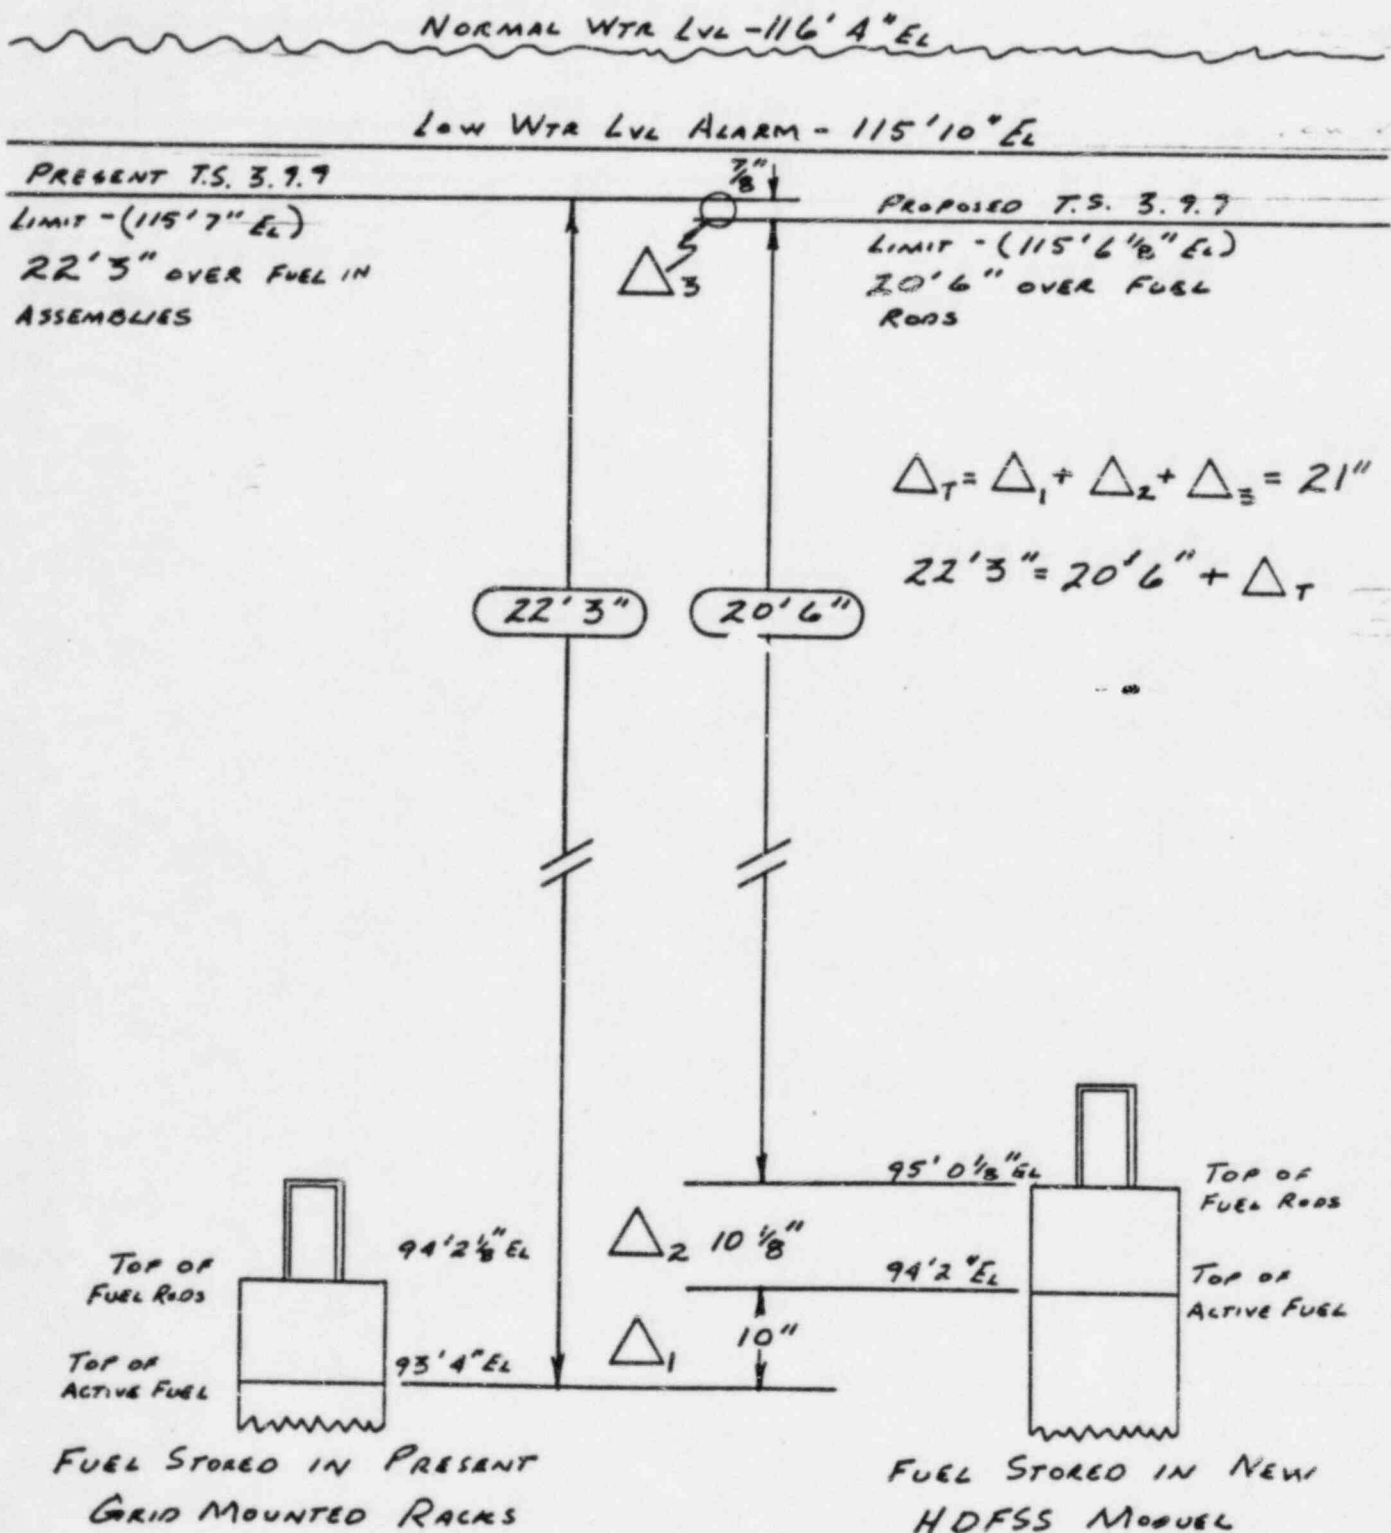 NORMAL WTR LVL - 116' 4" EL
LOW WTR LVL ALARM - 115' 10" EL
PRESENT T.S. 3.9.9
LIMIT - (115' 7" EL)
22' 3" OVER FUEL IN
ASSEMBLIES
7/8"
△3
PROPOSED T.S. 3.9.9
LIMIT - (115' 6 1/8" EL)
20' 6" OVER FUEL
RODS
△T = △1 + △2 + △3 = 21"
22' 3" = 20' 6" + △T
22' 3"
20' 6"
95' 0 1/8" EL
TOP OF
FUEL RODS
94' 2 1/8" EL
△2 10 1/8"
94' 2" EL
TOP OF
FUEL RODS
TOP OF
ACTIVE FUEL
△1
10"
93' 4" EL
TOP OF
ACTIVE FUEL
FUEL STORED IN PRESENT
GRID MOUNTED RACKS
FUEL STORED IN NEW
HDFSS MODUEL